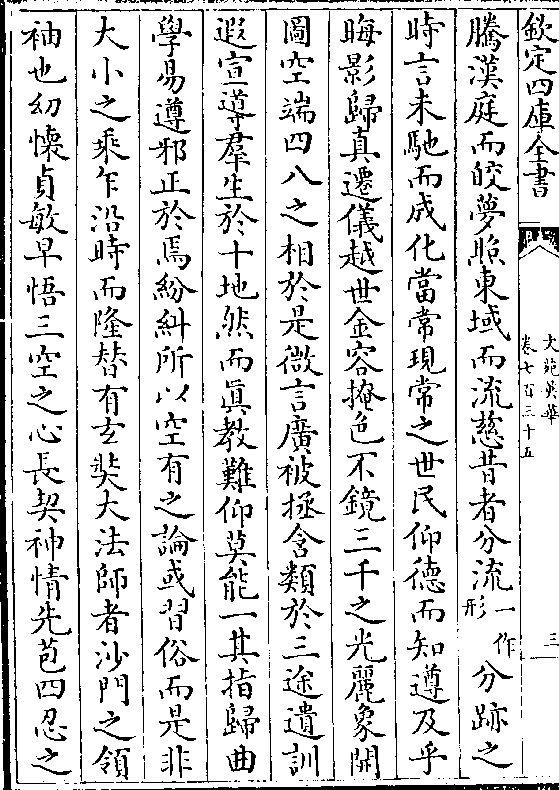 欽定四庫全書
文苑英華
卷七百三十五
三
騰漢庭而皎夢照東域而流慈昔者分流一作形分跡之
時言未馳而成化當常現常之世民仰德而知遵及乎
晦影歸真遷儀越世金容掩色不鏡三千之光麗象開
圖空端四八之相於是微言廣被拯含類於三途遺訓
遐宣導羣生於十地然而真教難仰莫能一其指歸曲
學易遵邪正於焉紛糾所以空有之論或習俗而是非
大小之乘乍沿時而隆替有玄奘大法師者沙門之領
袖也幼懷貞敏早悟三空之心長契神情先苞四忍之